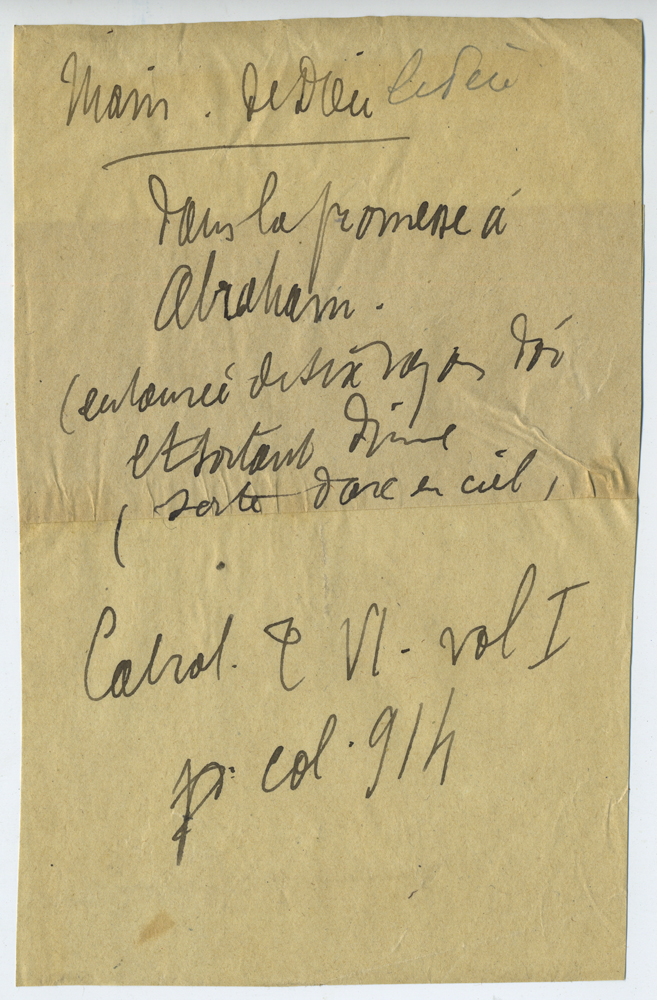 Main. de Dieu
dans la promesse à
Abraham.
(entourée de six rayons d'or
et sortant d'une
(sorte d'arc en ciel,
Cabrol. T VI - vol I
p. col. 914